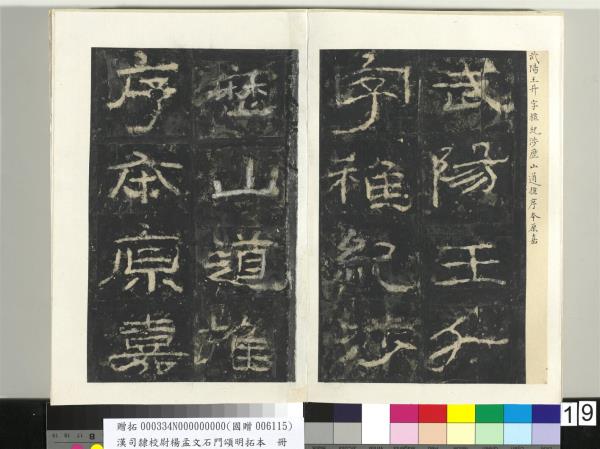 武陽王升字稚紀涉歷山道推序本原嘉
武陽王升
字稚紀涉
歷山道推
序本原嘉
19
贈拓 000334N000000000(國贈 006115)
漢司隸校尉楊孟文石門頌明拓本　冊